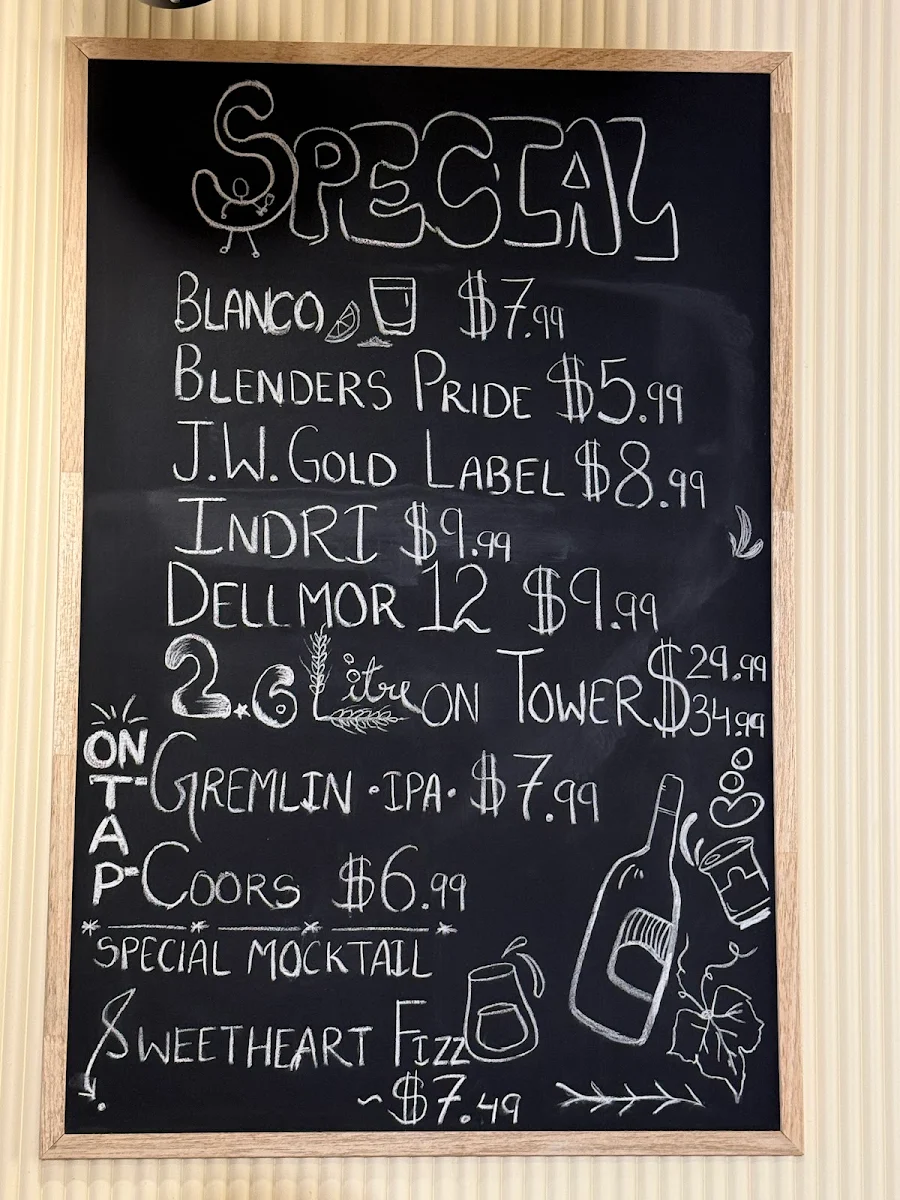 SPECIAL
BLANCO $7.99
BLENDERS PRIDE $5.99
J.W. GOLD LABEL $8.99
INDRI $9.99
DELLMOR 12 $9.99
2.6 Litre ON TOWER $29.99
34.99
ON TAP
GREMLIN •IPA• $7.99
COORS $6.99
SPECIAL MOCKTAIL
SWEETHEART FIZZ
~$7.49